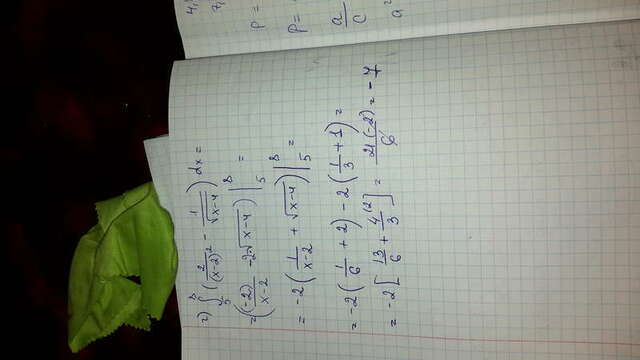 4,
7,
p =
p =
a/c
a²
г) ∫₅⁸ (2/(x-2)² - 1/√(x-4)) dx =
= ((-2)/(x-2) - 2√(x-4)) |₅⁸ =
= -2 (1/(x-2) + √(x-4)) |₅⁸ =
= -2 (1/6 + 2) - 2 (1/3 + 1) =
= -2 [13/6 + 4/3 (2] = 21(-2)/6 = -7